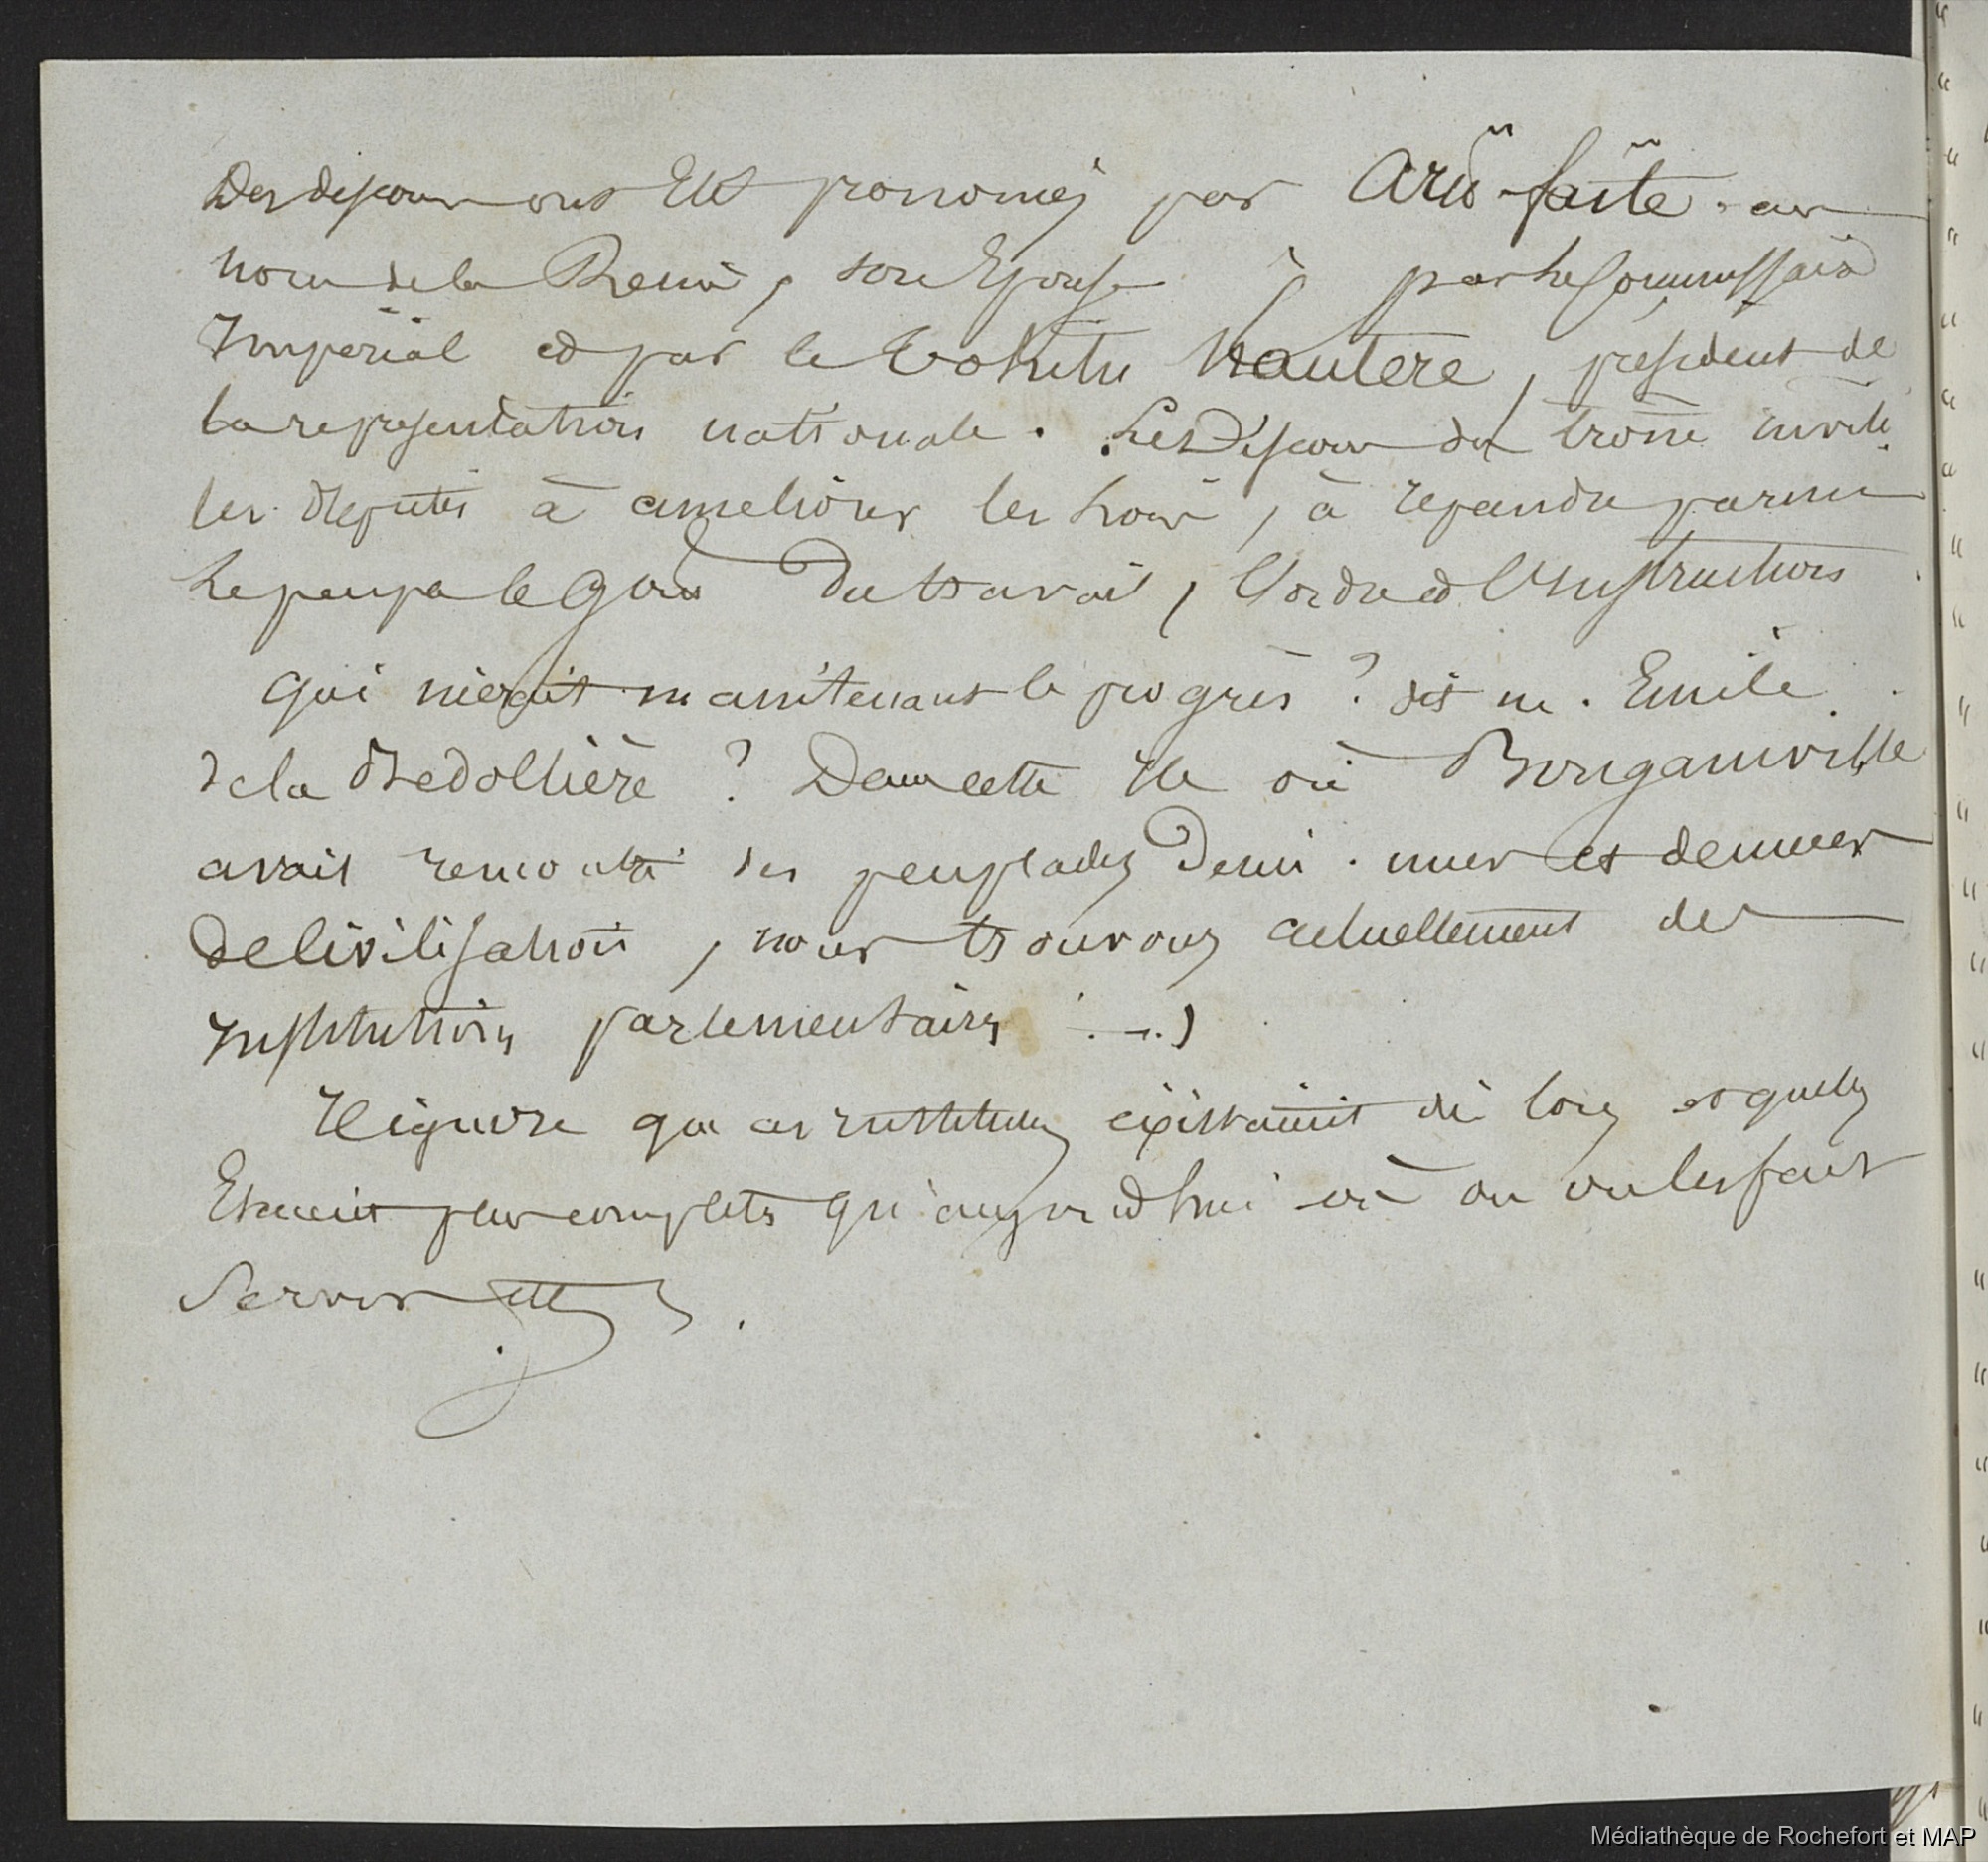 Des discours ont Eté prononcés par Ariï-faïte, au
nom de la Reine, son Epouse, par le Commissaire
Impérial et par le tohitu Nautere, president de
la representation nationale. Le Discours du trône invite
les députés à ameliorer les Lois, à repandre parmi
le peuple le Gout du travail, l'ordre et l'Instruction
Qui nierait maintenant le progrès ? dit m. Emile
de la Bedollière ? Dans cette Ile où Bougainville
avait rencontré des peuplades demi-nues et denuées
de civilisation, nous trouvons actuellement des
Institutions parlementaires ...)
Il ignore que ces institutions existaient de long et quelles
Etaient plus complets qu'aujourd'hui où on les fait
Servir
Médiathèque de Rochefort et MAP